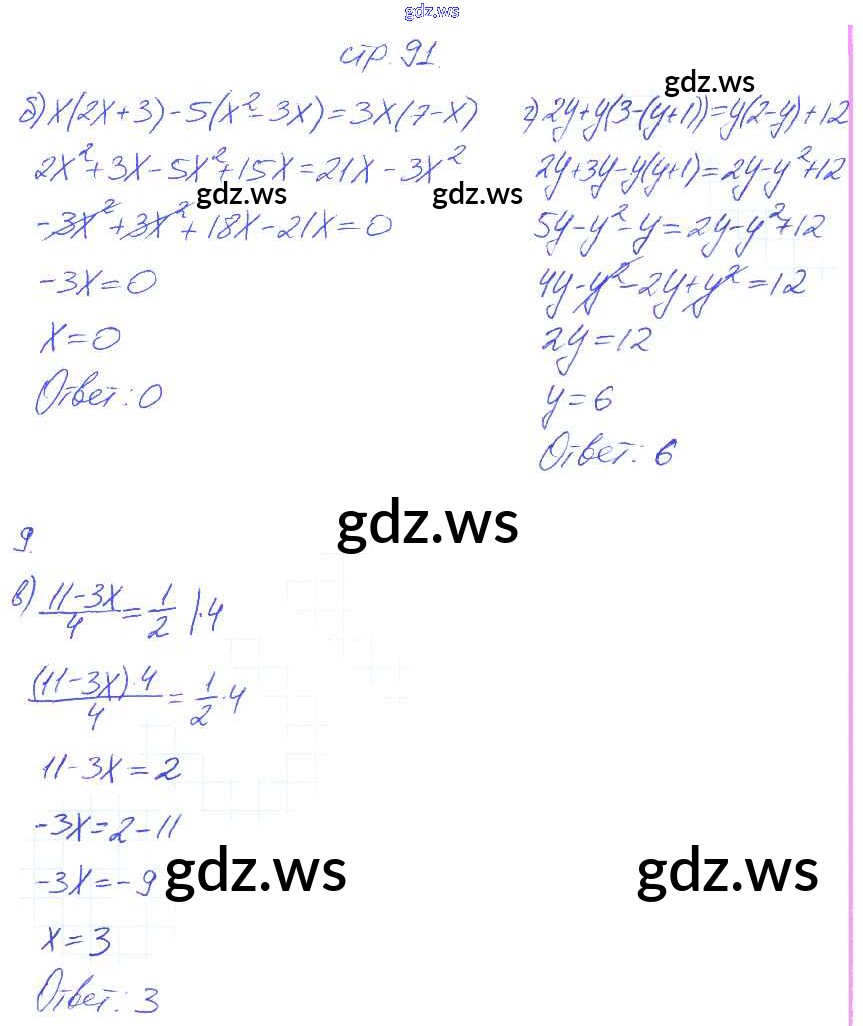 gdz.ws
стр. 91.
gdz.ws
б) x(2x+3)-5(x²-3x)=3x(7-x)
2x²+3x-5x²+15x=21x-3x²
gdz.ws
-3x²+3x²+18x-21x=0
-3x=0
x=0
Ответ: 0
г) 2y+y(3-(y+1))=y(2-y)+12
2y+3y-y(y+1)=2y-y²+12
gdz.ws
5y-y²-y=2y-y²+12
4y-y²-2y+y²=12
2y=12
y=6
Ответ: 6
gdz.ws
9.
в) (11-3x)/4 = 1/2 |·4
(11-3x)·4/4 = 1/2·4
11-3x=2
-3x=2-11
gdz.ws gdz.ws
-3x=-9
x=3
Ответ: 3